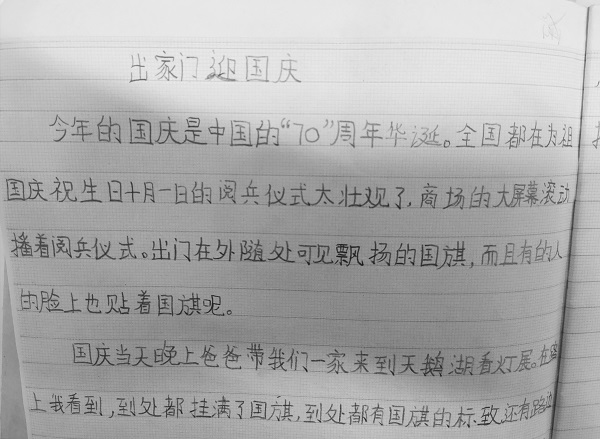 出家门迎国庆
今年的国庆是中国的“70”周年华诞。全国都在为祖
国庆祝生日十月一日的阅兵仪式太壮观了,商场的大屏幕滚动
播着阅兵仪式。出门在外随处可见飘扬的国旗,而且有的人
的脸上也贴着国旗呢。
国庆当天晚上爸爸带我们一家来到天鹅湖看灯展。在路
上我看到,到处都挂满了国旗,到处都有国旗的标致.还有路边